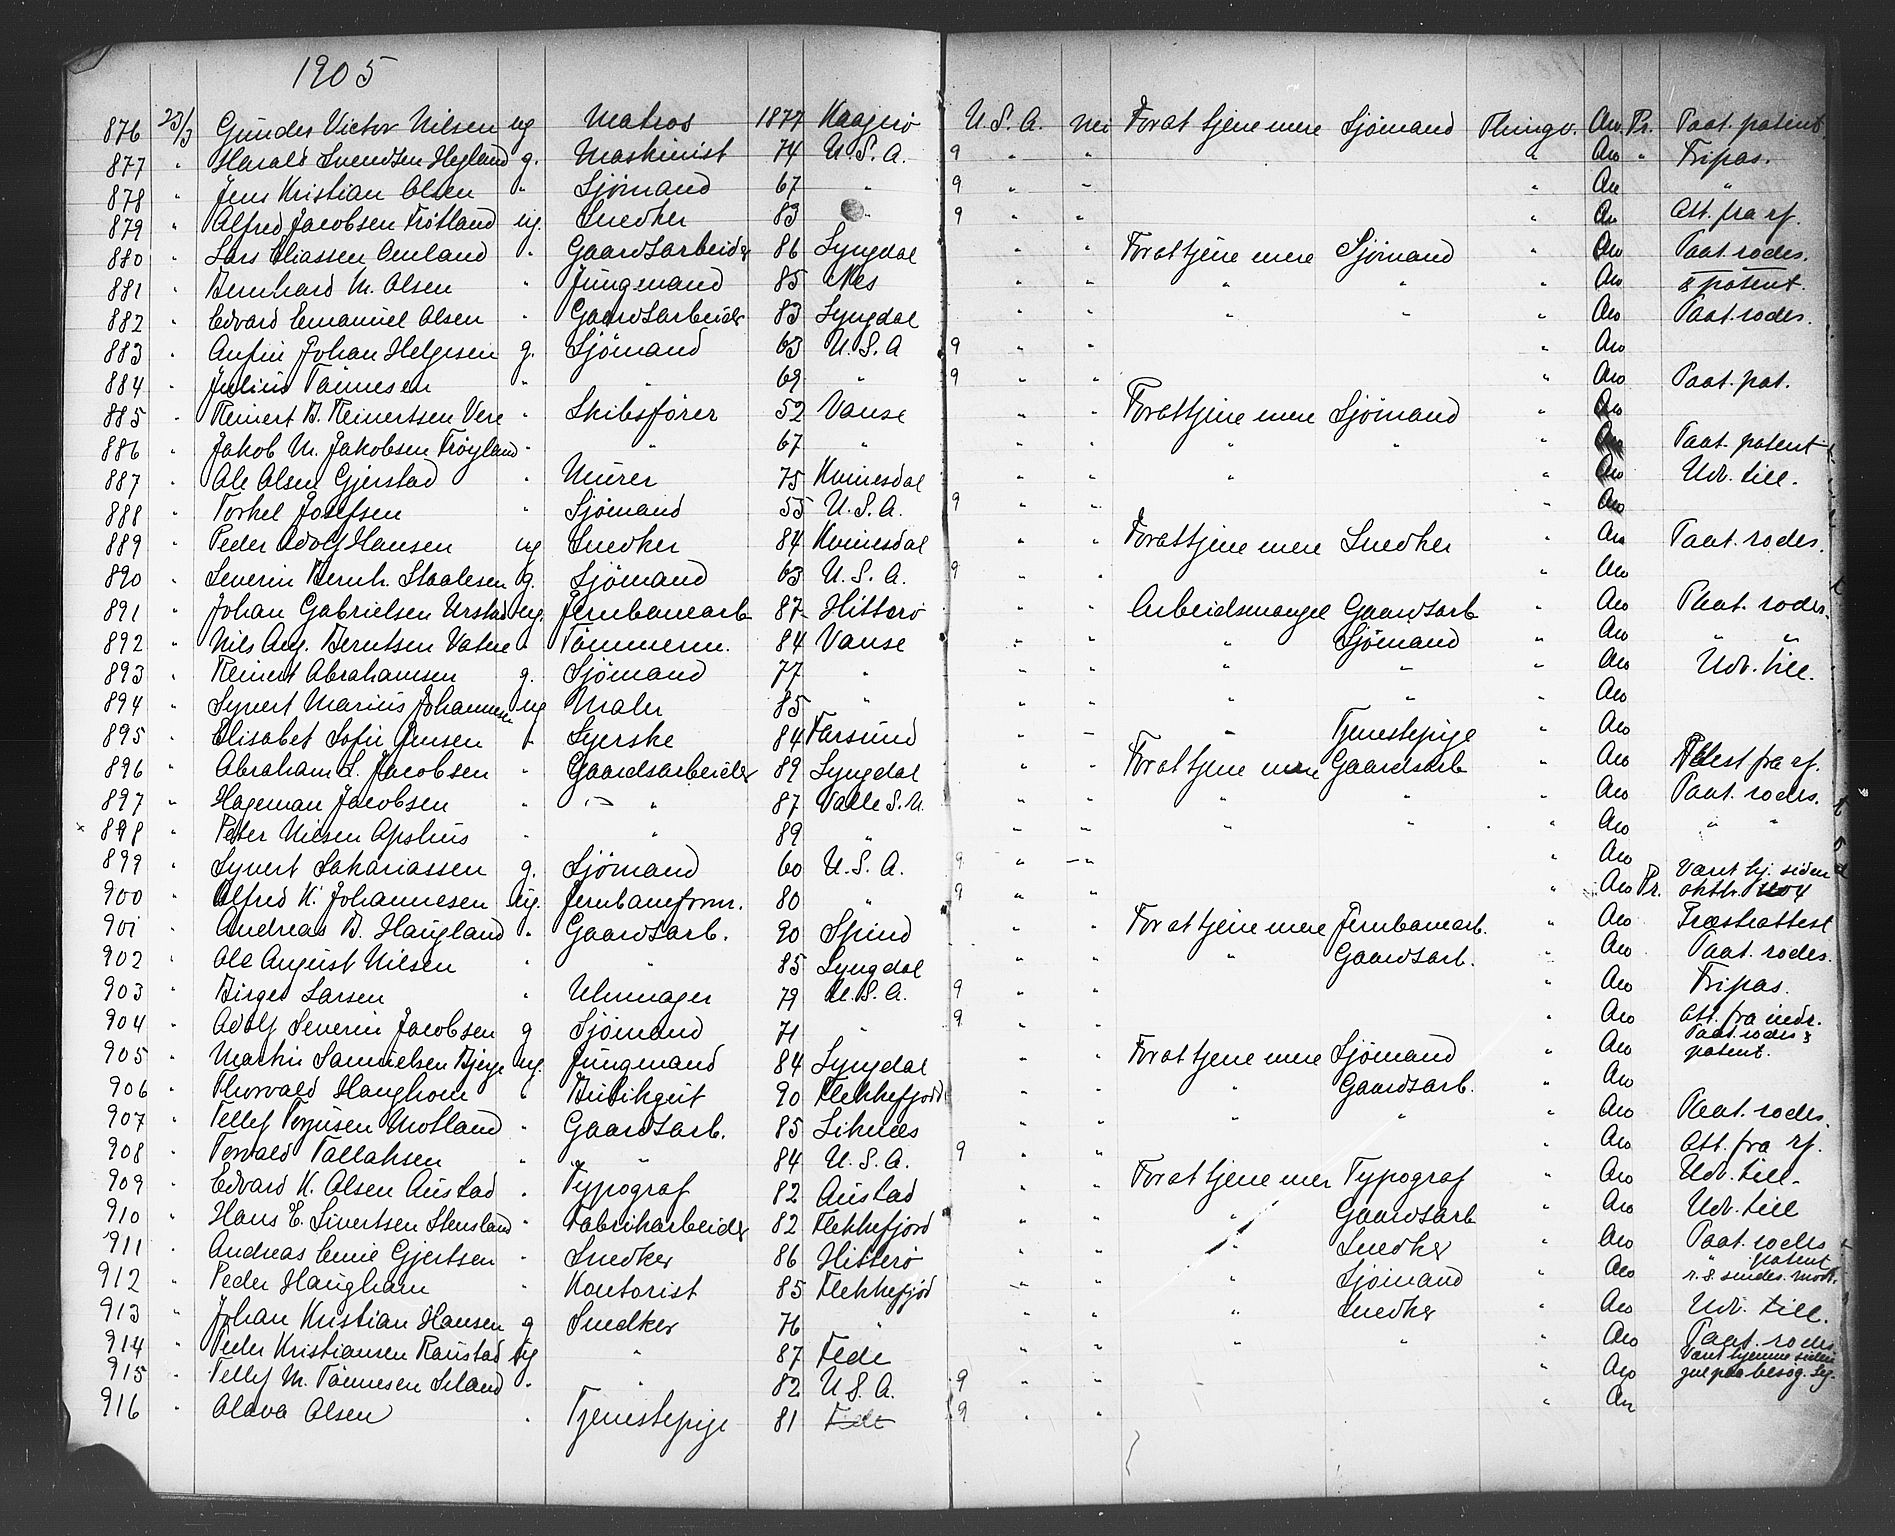 1905
876 23/3 Gunder Victor Nilsen ug Matros 1877 U.S.A. Nei For at tjene mere Sjömand Thingv. Pr. Paat. patent
877 " Harald Svendsen g. Maskinist 74 U.S.A. 9 " " " " Fripas.
878 " Jens Kristian Olsen " Sjömand 67 " 9 " " " "
879 " Alfred Jacobsen ug. Snedker 83 " 9 " " " Att. fra rf.
880 " Lars Eliassen Omland " Gaardsarbeider 86 Lyngdal " " For at tjene mere Sjömand " Paat. rodes.
881 " Bernhard M. Olsen " Jungmand 85 Nes " " " " " & patent.
882 " Edvard Emanuel Olsen " Gaardsarbeider 83 Lyngdal " " " " " Paat. rodes.
883 " Anfin Johan Helgesen g. Sjömand 63 U.S.A 9 " " "
884 " Julius Tönnesen " " 69 " 9 " " " Paat. pat.
885 " Reinert B. Reinertsen Vere " Skibsfører 52 Vanse " " For at tjene mere Sjömand "
886 " Jakob M. Jakobsen Fröyland " " 67 " " " " " " Paat. patent
887 " Ole Olsen Gjerstad " Murer 75 Kvinesdal " " " " Udv. till.
888 " Torkel Josefsen " Sjömand 55 U.S.A. 9 " " "
889 " Peder Adolf Hansen ug Snedker 84 Kvinesdal " " For at tjene mere Snedker " Paat. rodes.
890 " Severin Bernh. Staalesen g. Sjömand 63 U.S.A. 9 " " "
891 " Johan Gabrielsen Urstad ug. Jernbanearb 87 Hitterö " " Arbeidsmangel Gaardsarb " Paat. rodes.
892 " Nils Aug. Berntsen Vatne " Tömmerm. 84 Vanse " " " Sjömand " " "
893 " Reinert Abrahamsen g. Sjömand 77 " " " " " " Udv. till.
894 " Syvert Marius Johannesen ug Maler 85 " " " " " "
895 " Elisabet Sofie Jensen " Syerske 84 Farsund " " " Tjenestepige "
896 " Abraham L. Jacobsen " Gaardsarbeider 89 Lyngdal " " For at tjene mere Gaardsarb " fra rf.
897 " Hageman Jacobsen " " 87 Valle S.U. " " " " " Paat. rodes.
898 " Peter Nilsen " " 89 " " " " " " " "
899 " Syvert Sakariassen g. Sjömand 60 U.S.A. 9 " " " Været hj. siden
900 " Alfred K. Johannesen ug. Jernbaneform. 80 " 9 " " " Pr. oktbr. 1904
901 " Andreas B. Haugland " Gaardsarb. 90 Spind " " For at tjene mere Jernbanearb. "
902 " Ole August Nilsen " " 85 Lyngdal " " " Gaardsarb. " Paat. rodes.
903 " Birger Larsen " Uhrmager 79 U.S.A. 9 " " " Fripas.
904 " Adolf Severin Jacobsen g Sjömand 71 " 9 " " " Att. fra indr.
905 " Martin Samuelsen Bjerge ug. Jungmand 84 Lyngdal " " For at tjene mere Sjömand " Paat. rodes & patent.
906 " Thorvald Haughom " Butikgut 90 Flekkefjord " " " Gaardsarb. "
907 " Tellef Torjusen Motland " Gaardsarb. 85 Liknes " " " " " Paat. rodes.
908 " Torvald Tallaksen " " 84 U.S.A. 9 " " " Att. fra rf.
909 " Edvard K. Olsen Austad " Typograf 82 Austad " " For at tjene mer Typograf " Udv. till.
910 " Hans E. Sivertsen Stensland " Fabrikarbeider 82 Flekkefjord " " " Gaardsarb " Udv. till
911 " Andreas Emil Gjertsen " Snedker 86 Hitterö " " " Snedker " Paat. rodes + patent
912 " Peder Haugham " Kontorist 85 Flekkefjord " " " Sjömand "
913 " Johan Kristian Hansen g Snedker 76 " " " " Snedker " Udv. till.
914 " Peder Kristiansen Raustad ug " 87 Fede " " " " " Paat. rodes
915 " Tellef M. Tönnesen Seland " " 82 U.S.A. 9 " " " Været hjemme siden jul paa besög.
916 " Olava Olsen " Tjenestepige 81 Fede 9 " " "